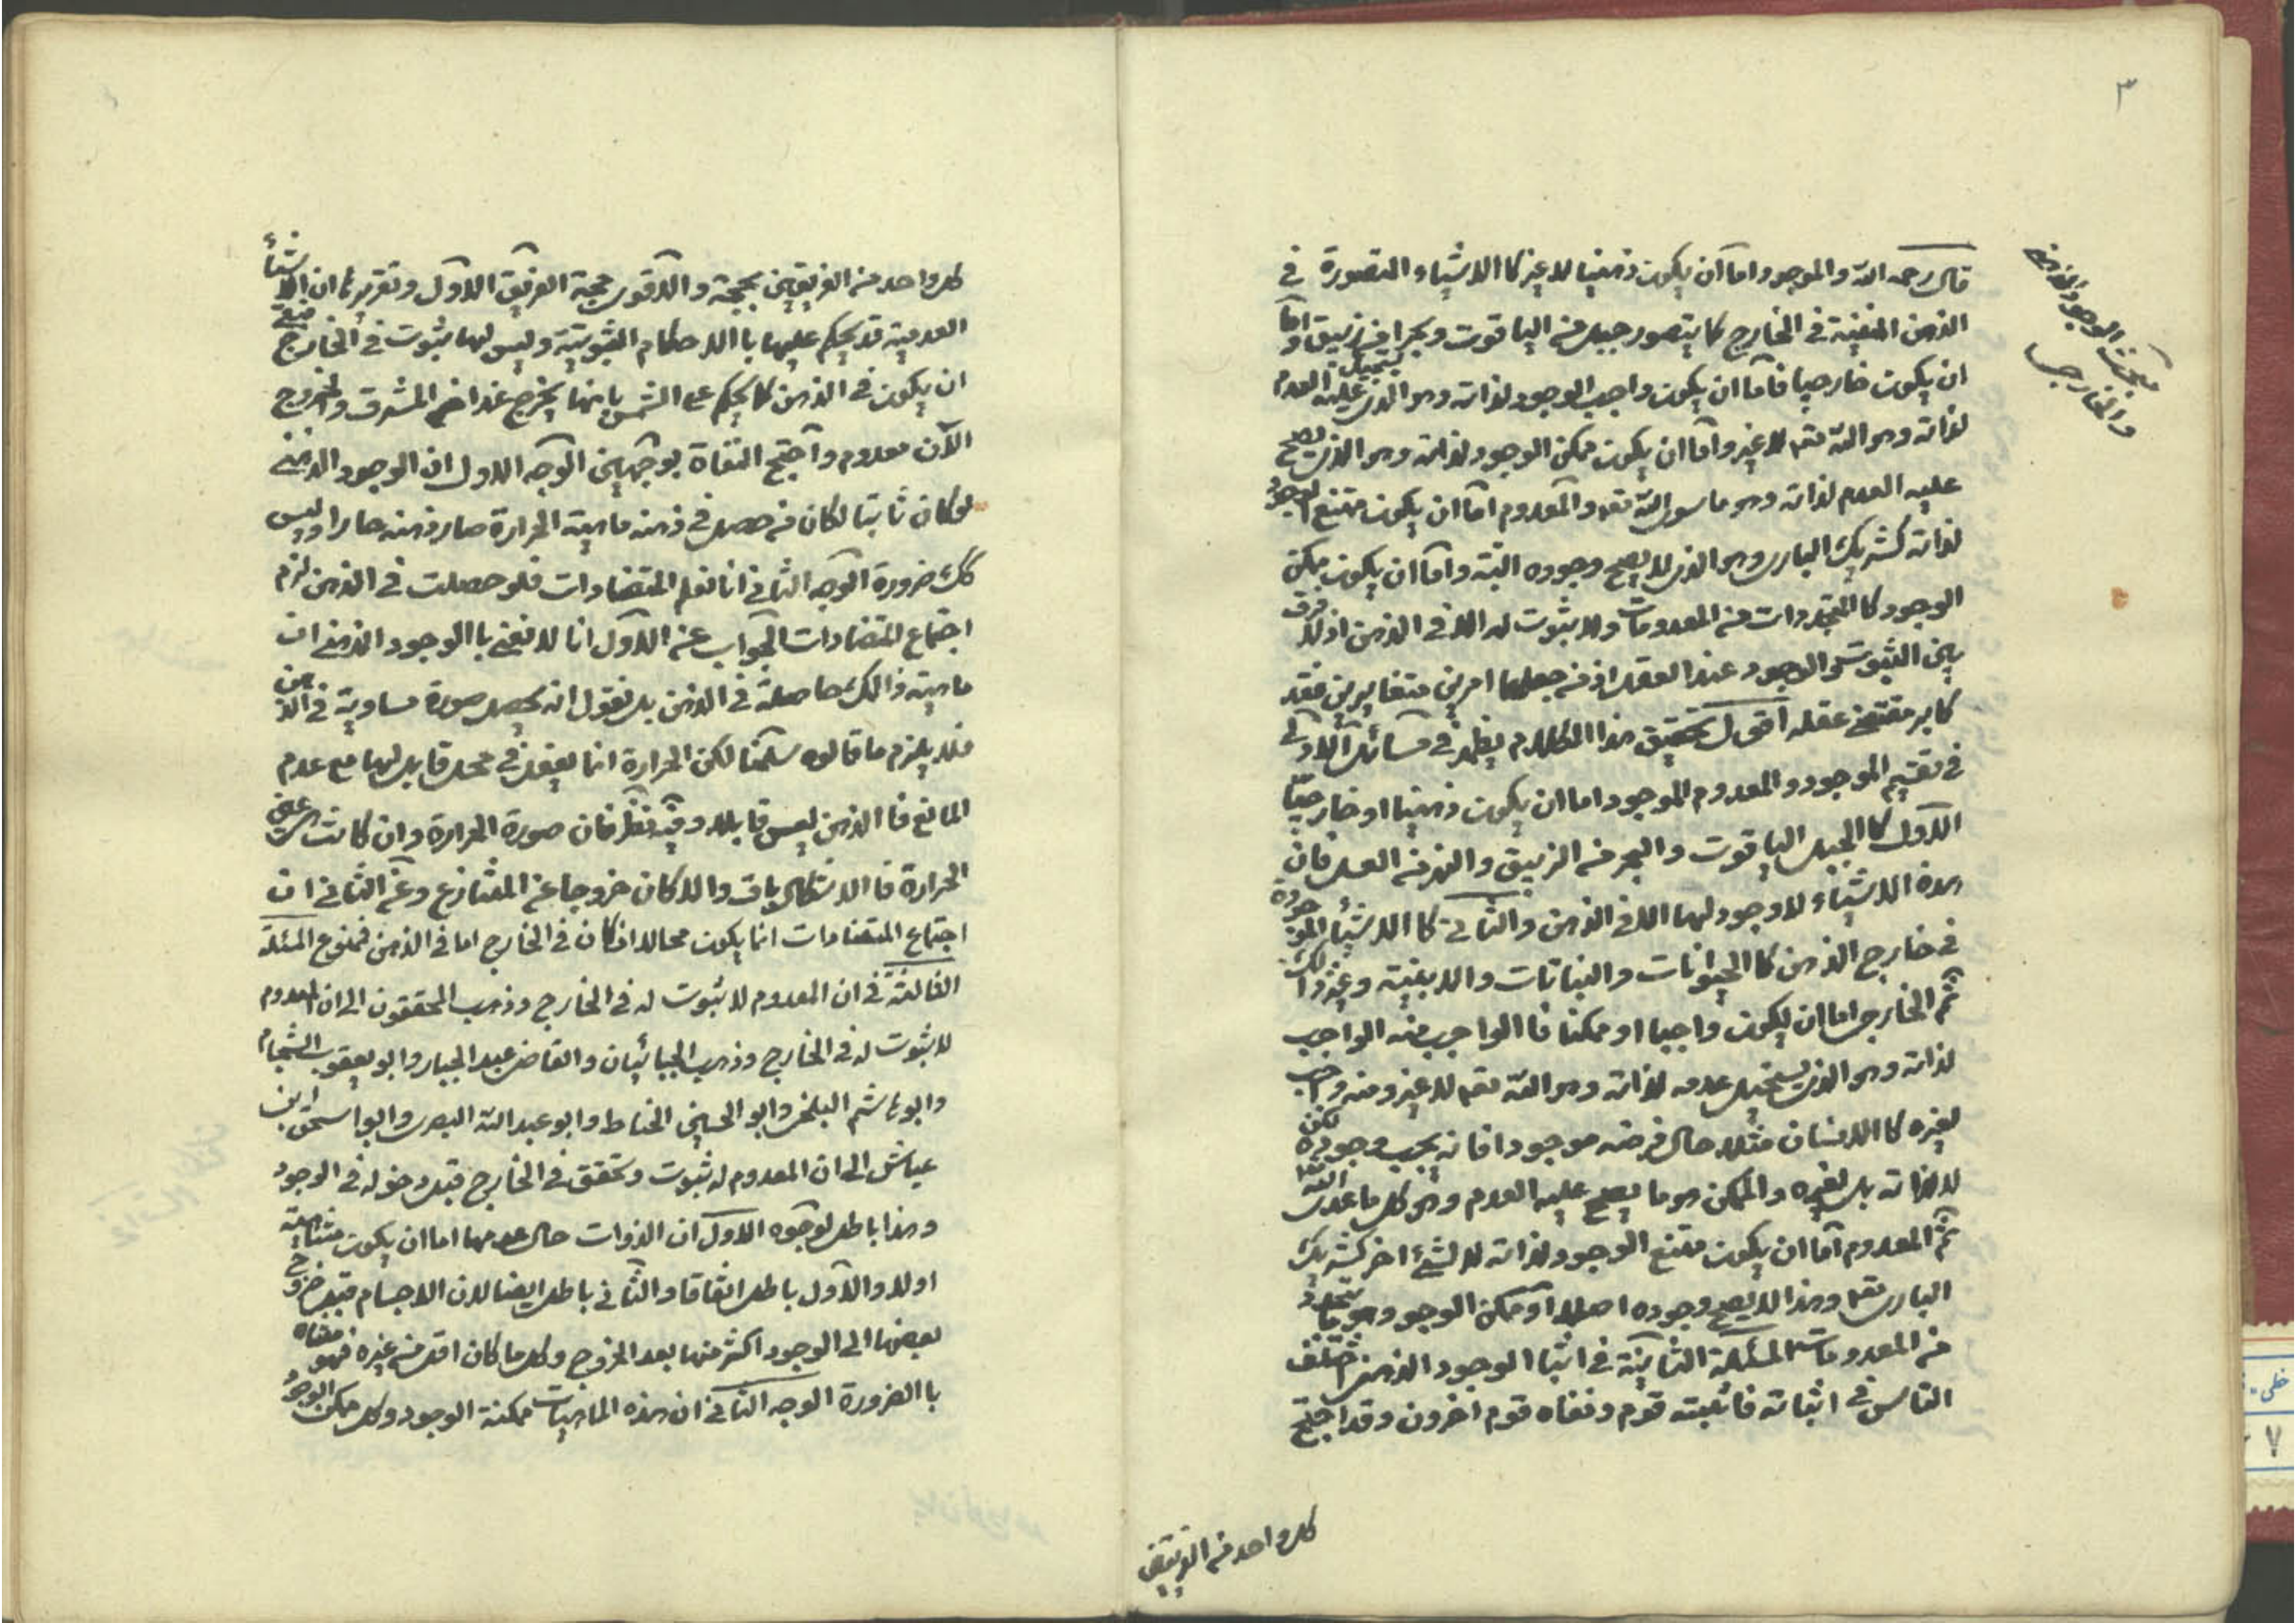 ٣
مبحث الوجود الذهني
والخارجي
قال رحمه الله والموجود اما آن يكون ذهنيا لا غير كا الاشياء المتصورة في
الذهن المنفية في الخارج كما يتصور جبل من الياقوت وبحرا من زيبق واما
ان يكون خارجيا فاما آن يكون واجب الوجود لذاته وهو الذي يستحيل عليه العدم
لذاته وهو الله تعه لا غير واما ان يكون ممكن الوجود لذاته وهو الذي يصح
عليه العدم لذاته وهو ما سوى الله تعه والمعدوم اما ان يكون ممتنع الوجود
لذاته كشريك الباري وهو الذي لا يصح وجوده البتة واما آن يكون ممكن
الوجود كا المتجددات من المعدومات ولا ثبوت له الا في الذهن اذ لا فرق
بين الثبوت والوجود عند العقل اذ من جعلهما امرين متغايرين فقد
كابر مقتضى عقله اقول تحقيق هذا الكلام يظهر في مسائل الاولى
في تقسيم الموجود والمعدوم الموجود اما ان يكون ذهنيا او خارجيا
الاول كا الجبل الياقوت والبحر من الزيبق والنهر من العسل فان
هذه الاشياء لا وجود لها الا في الذهن والثاني كا الاشيأ الموجودة
في خارج الذهن كا الحيوانات والنباتات والابنية وغير ذالك
ثم الخارجي اما ان يكون واجبا او ممكنا فا الواجب منه الواجب
لذاته وهو الذي يستحيل عدمه لذاته وهو الله تعه لا غير ومنه واجب
لغيره كا الانسان مثلا حال فرضه موجودا فانه يجب وجوده لكن
لا لذاته بل لغيره والممكن هو ما يصح عليه العدم وهو كل ما عدى الله
ثم المعدوم اما ان يكون ممتنع الوجود لذاته لا لشئ اخر كشريك
الباري تعه وهذا لا يصح وجوده اصلا او ممكن الوجود وهو ما يتجدد
من المعدومات المسئلة الثانية في اثبا الوجود الذهني اختلف
الناس في اثباته فاثبته قوم ونفاه قوم اخرون وقد احتج
كل واحد من الفريقين
كل واحد من الفريقين بحجة والاقوى حجة الفريق الاول وتقريرها ان الاشيأ
العدمية قد يحكم عليها با الاحكام الثبوتية وليس لها ثبوت في الخارج فبقى
ان يكون في الذهن كما يحكم على الشمس بانها يخرج غدا من المشرق والخروج
الآن معدوم واحتج النفاة بوجهين الوجه الاول ان الوجود الذهني
لو كان ثابتا لكان من حصل في ذهنه ماهية الحرارة صار ذهنه حارا وليس
كك ضرورة الوجه الثاني انا نعلم المتضادات فلو حصلت في الذهن لزم
اجتماع المتضادات الجواب عن الاول انا لا نعني با الوجود الذهني ان
ماهية ذالك حاصلة في الذهن بل نقول انه يحصل صورة مساوية في الذهن
فلا يلزم ما قالوه سلمنا لكن الحرارة انما يفعل في محل قابل لها مع عدم
المانع فا الذهن ليس قابلا وفيه نظر فان صورة الحرارة وان كانت عين
الحرارة فا الاشكال باق والا كان خروجا عن المتنازع وعن الثاني ان
اجتماع المتضادات انما يكون محالا اذ كان في الخارج اما في الذهن فممنوع المسئلة
الثالثة في ان المعدوم لا ثبوت له في الخارج وذهب المحققون الى ان المعدوم
لا ثبوت له في الخارج وذهب الجبائيان والقاضي عبد الجبار وابو يعقوب الشحام
وابو هاشم البلخي وابو الحسين الخياط وابو عبد الله البصري وابو اسحق ابن
عياش الى ان المعدوم له ثبوت وتحقق في الخارج قبل دخوله في الوجود
وهذا باطل لوجوه الاول ان الذوات حال عدمها اما ان يكون متناهية
او لا والاول باطل اتفاقا والثاني باطل ايضا لان الاجسام قبل خروج
بعضها الى الوجود اكثر منها بعد الخروج وكل ما كان اقل من غيره فهو متناه
با الضرورة الوجه الثاني ان هذه الماهيات ممكنة الوجود وكل ممكن الوجود
خطى
٧